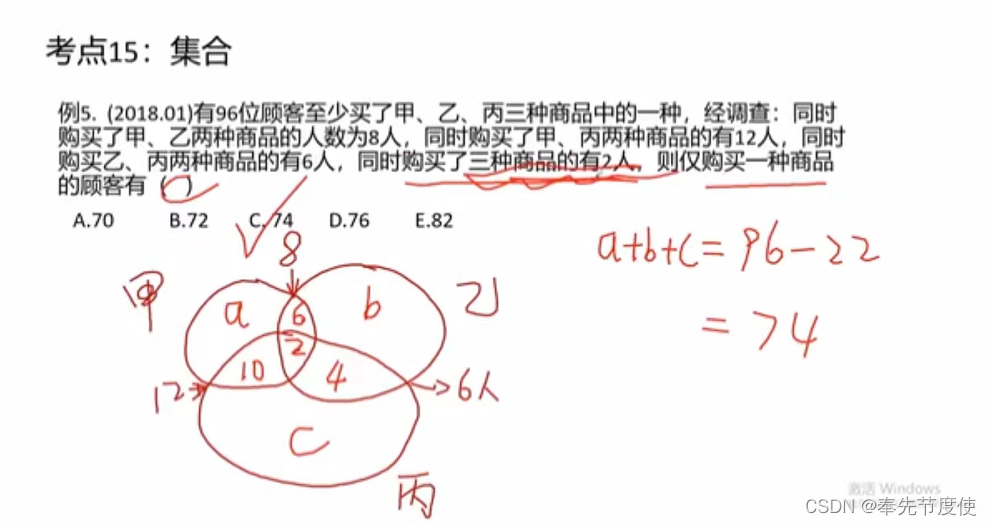 考点15：集合
例5. (2018.01)有96位顾客至少买了甲、乙、丙三种商品中的一种，经调查：同时
购买了甲、乙两种商品的人数为8人，同时购买了甲、丙两种商品的有12人，同时
购买乙、丙两种商品的有6人，同时购买了三种商品的有2人，则仅购买一种商品
的顾客有（ ）
A.70 B.72 C.74 D.76 E.82
a+b+c=96-22
=74
8
甲 a 6 b 乙
2
12 10 4 6人
c
丙
激活 Windows
CSDN @奉先节度使